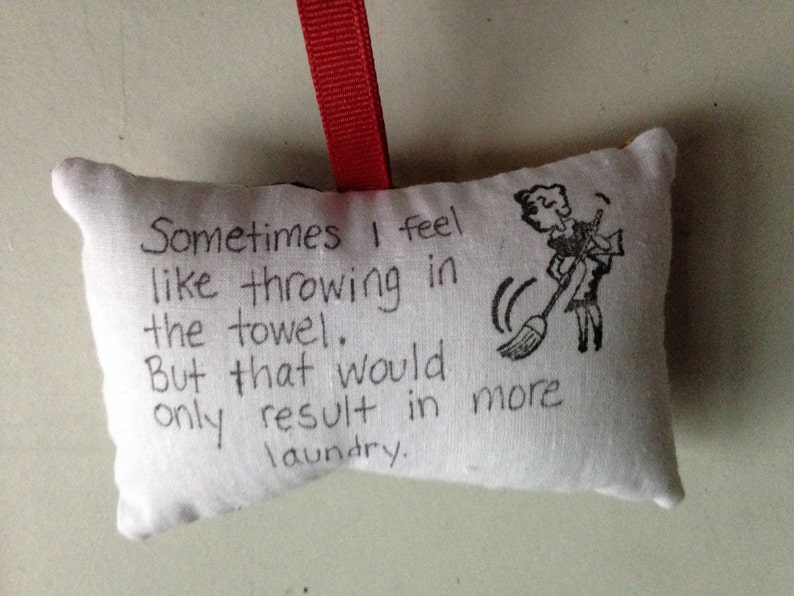 Sometimes I feel
like throwing in
the towel.
But that would
only result in more
laundry.